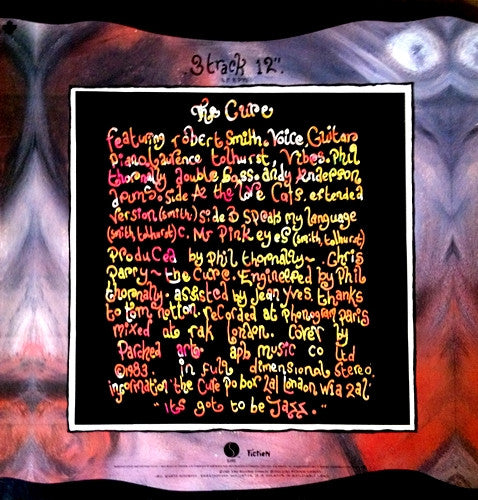 3 track 12".
The Cure
featuring robert Smith. Voice, Guitar
Piano. Laurence tolhurst, Vibes. Phil
thornally double bass. andy Anderson,
drums. Side A the love Cats. extended
version (smith.) side B Speak my language
(smith, tolhurst) C. Mr Pink eyes (smith, tolhurst)
Produced by phil thornally~. Chris
Parry ~ the Cure. Engineered by Phil
thornally. assisted by Jean Yves. thanks
to tom notton. recorded at phonogram paris
mixed at rak london. Cover by
Parched art. apb music co ltd
©1983. in full dimensional stereo.
information 'the Cure po bor 2al london w1a 2al'
it's got to be Jazz."
SIRE
Fiction